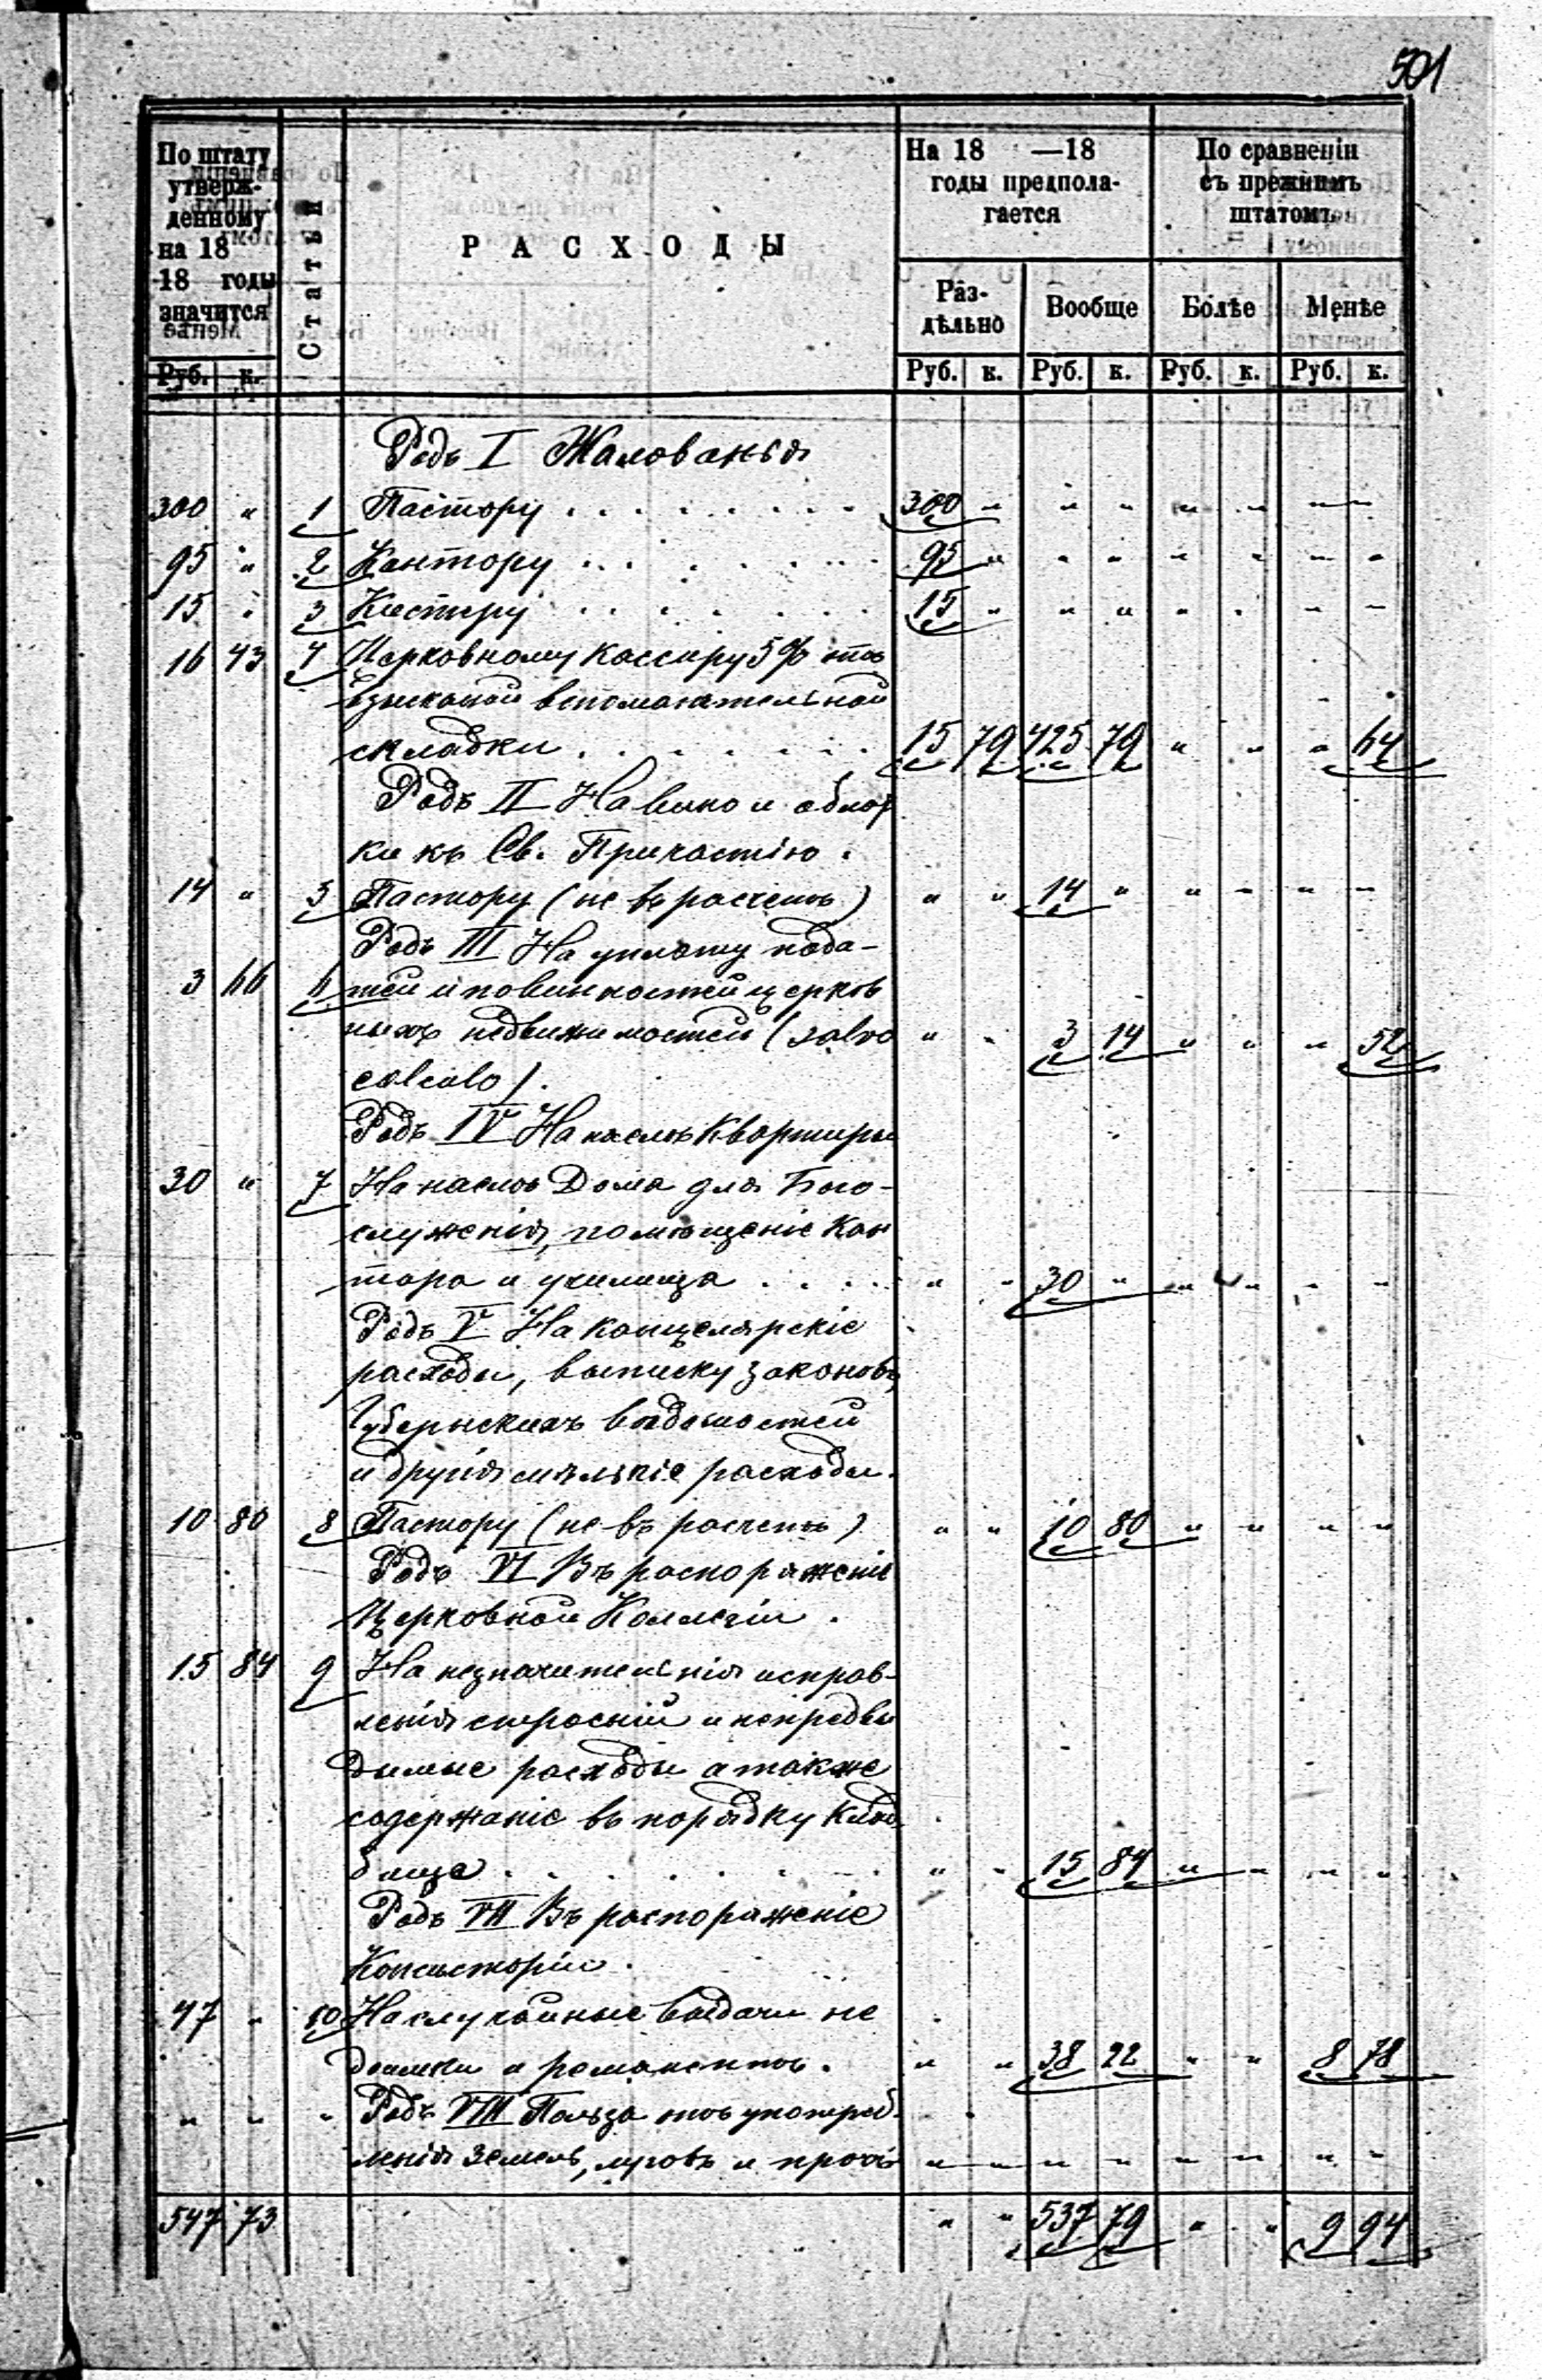 501
По штату утверж- денному на 18 18 годы значится
Статьи
РАСХОДЫ
На 18 —18 годы предпола- гается
По сравненіи съ прежнимъ штатомъ
Раз- дѣльно
Вообще
Болѣе
Менѣе
Руб. к. Руб. к. Руб. к. Руб. к. Руб. к.
Родъ I Жалованья
300 " 1 Пастору . . . . . . . . 300 " " " " " " "
95 " 2 Кантору . . . . . . . 95 " " " " " " "
15 " 3 Кистеру . . . . . . . 15 " " " " " " "
16 43 4 Церковному Кассиру 5% отъ
взысканой вспомагательной
складки . . . . . . . 15 79 425 79 " " " 64
Родъ II На вино и облат
ки къ Св. Причастію.
14 " 5 Пастору (не въ расчетъ) " " 14 " " " " "
Родъ III На уплату пода-
3 66 6 тей и повинностей церков
ныхъ недвижимостей (salvo " " 3 14 " " " 52
calculo).
Родъ IV На наемъ Квартиры
30 " 7 На наемъ Дома для Бого-
служенія, помѣщеніе Кан
тора и училища . . . . " " 30 " " " " "
Родъ V На канцелярскіе
расходы, выписку законовъ,
Губернскихъ вѣдомостей
и другія мѣлькіе расходы.
10 80 8 Пастору (не въ расчетъ) " " 10 80 " " " "
Родъ VI Въ распоряженіе
Церковной Коллегіи.
15 84 9 На незначительнія исправ-
ленія строеній и непредви
димые расходы а также
содержаніе въ порядку Клад
бища . . . . . . . " " 15 84 " " " "
Родъ VII Въ распоряженіе
Консисторіи.
47 " 10 На случайные выдачи не
доимки и романентъ. " " 38 22 " " 8 78
" " " Родъ VIII Польза отъ употреб-
ленія земель, луговъ и прочіе " " " " " " " "
547 73 " " 537 79 " " 9 94